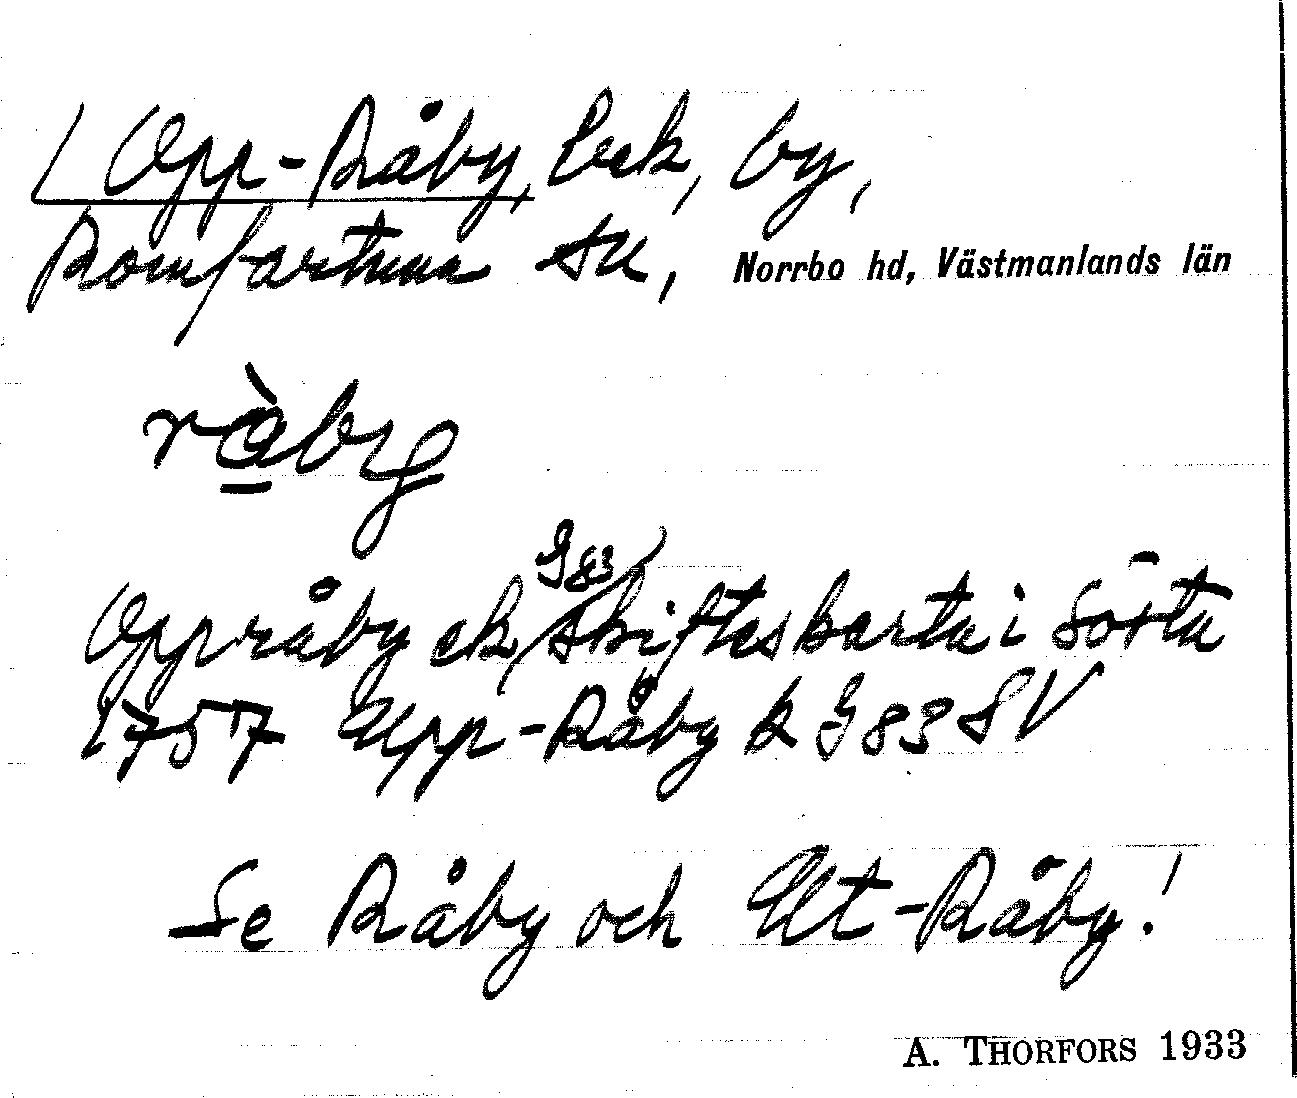 Opp-Råby, Eek, by,
Romfartuna sn, Norrbo hd, Västmanlands län
ràby
Oppråby ek, G 83 skifteskarta i Sörtu
1757 Upp-Råby k G 83 SV
Se Råby och Ut-Råby!
A. THORFORS 1933